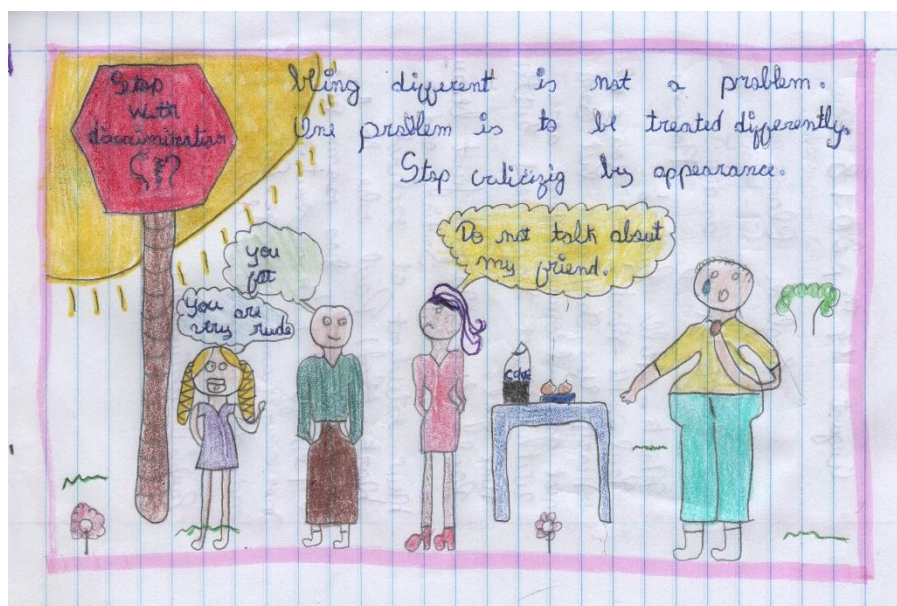 Stop
with
discrimination
being different is not a problem.
One problem is to be treated differently.
Stop criticizig by appearance.
you
fat
You are
very rude
Do not talk about
my friend.
coke